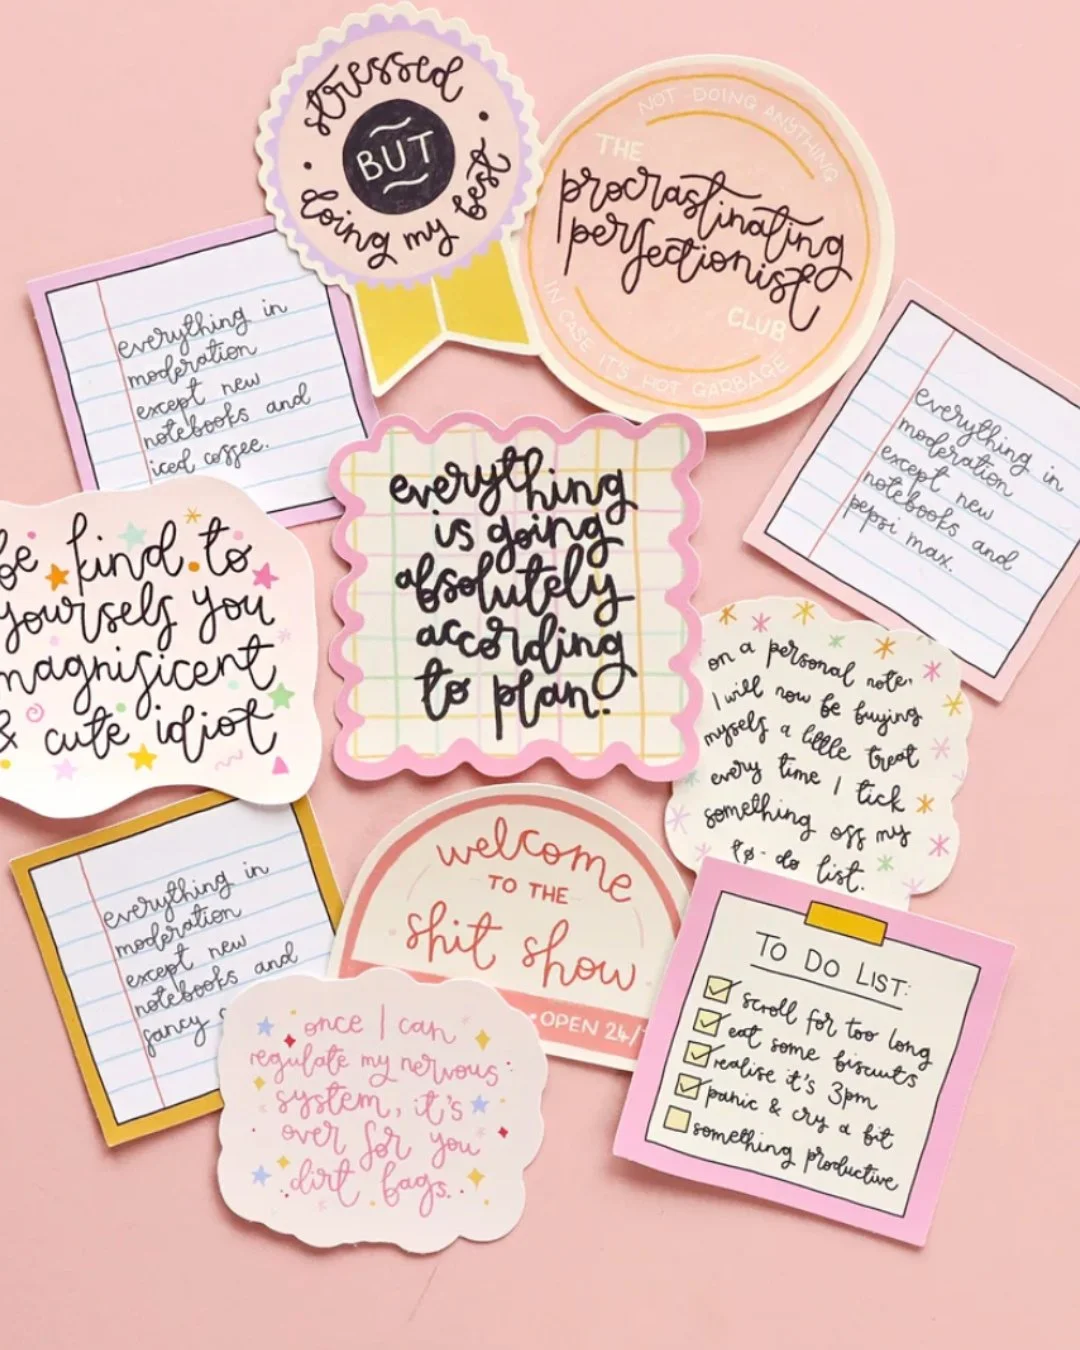 stressed
BUT
doing my best
NOT DOING ANYTHING
THE
procrastinating
perfectionist
CLUB
IN CASE IT'S HOT GARBAGE
everything in
moderation
except new
notebooks and
iced coffee.
everything in
moderation
except new
notebooks and
pepsi max.
be kind to
yourself you
magnificent
& cute idiot
everything
is going
absolutely
according
to plan.
on a personal note,
I will now be buying
myself a little treat
every time I tick
something off my
to-do list.
everything in
moderation
except new
notebooks and
fancy
welcome
TO THE
shit show
OPEN 24/
once I can
regulate my nervous
system, it's
over for you
dirt bags.
TO DO LIST:
scroll for too long
eat some biscuits
realise it's 3pm
panic & cry a bit
something productive